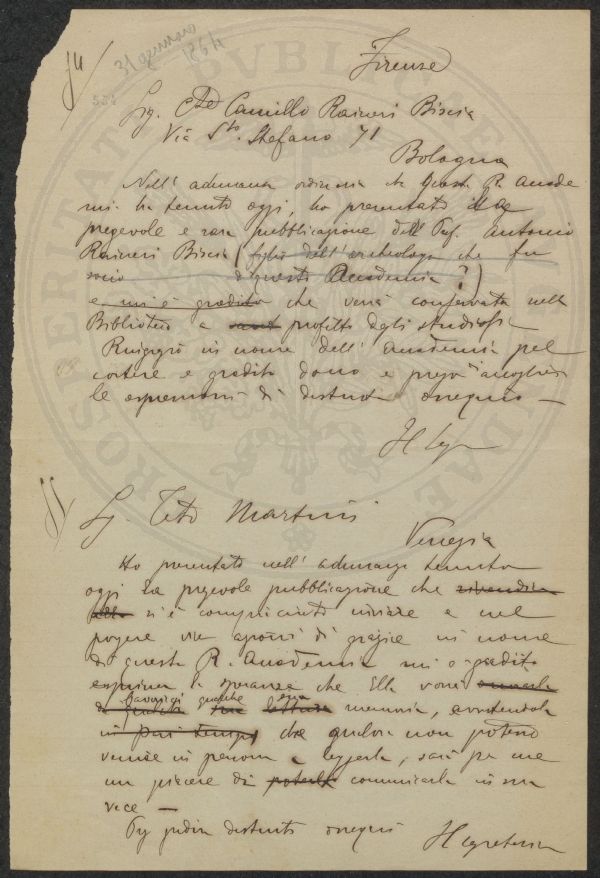 31 gennaro
1864
Firenze
Sig. Cte Camillo Raineri Biscia
Via Sto. Stefano 71
Bologna
Nell' adunanza ordinaria che questa R. Accade
mia ha tenuto oggi, ho presentato la
pregevole e rara pubblicazione dell Antonio
Raineri Biscia (figlio dell' archeologo che fu
socio di questa Accademia?)
e mi è gradito che verrà conservata nella
Biblioteca a profitto degli studiosi
Ringrazio in nome dell' Accademia pel
cortese e gradito dono e prego
le espressioni di distinto ossequio —
Il
Sig. Tito Martini
Venezia
Ho presentato nell' adunanza tenuta
oggi la pregevole pubblicazione che
si è compiaciuto inviare e nel
porgere vive grazie in nome
di questa R. Accademia mi è gradito
esprimere la speranza che Ella vorrà
favorirci qualche sua
lettura memoria, avvertendola
in pari tempo che qualora non potesse
venire in persona a leggerla, sarà per me
un piacere di poterla comunicarla in sua
vece —
distinto ossequio Il Segretario
PVBLICAE
VERITATI